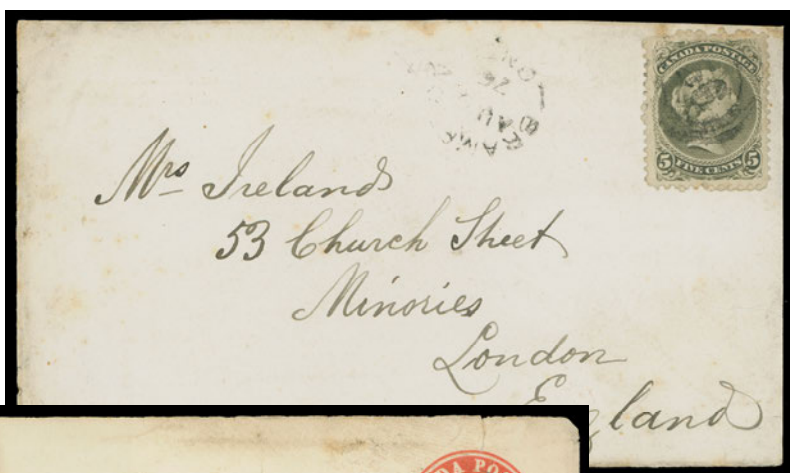 CANADA POSTAGE
5 FIVE CENTS 5
Mrs Ireland
53 Church Street
Minories
London
England